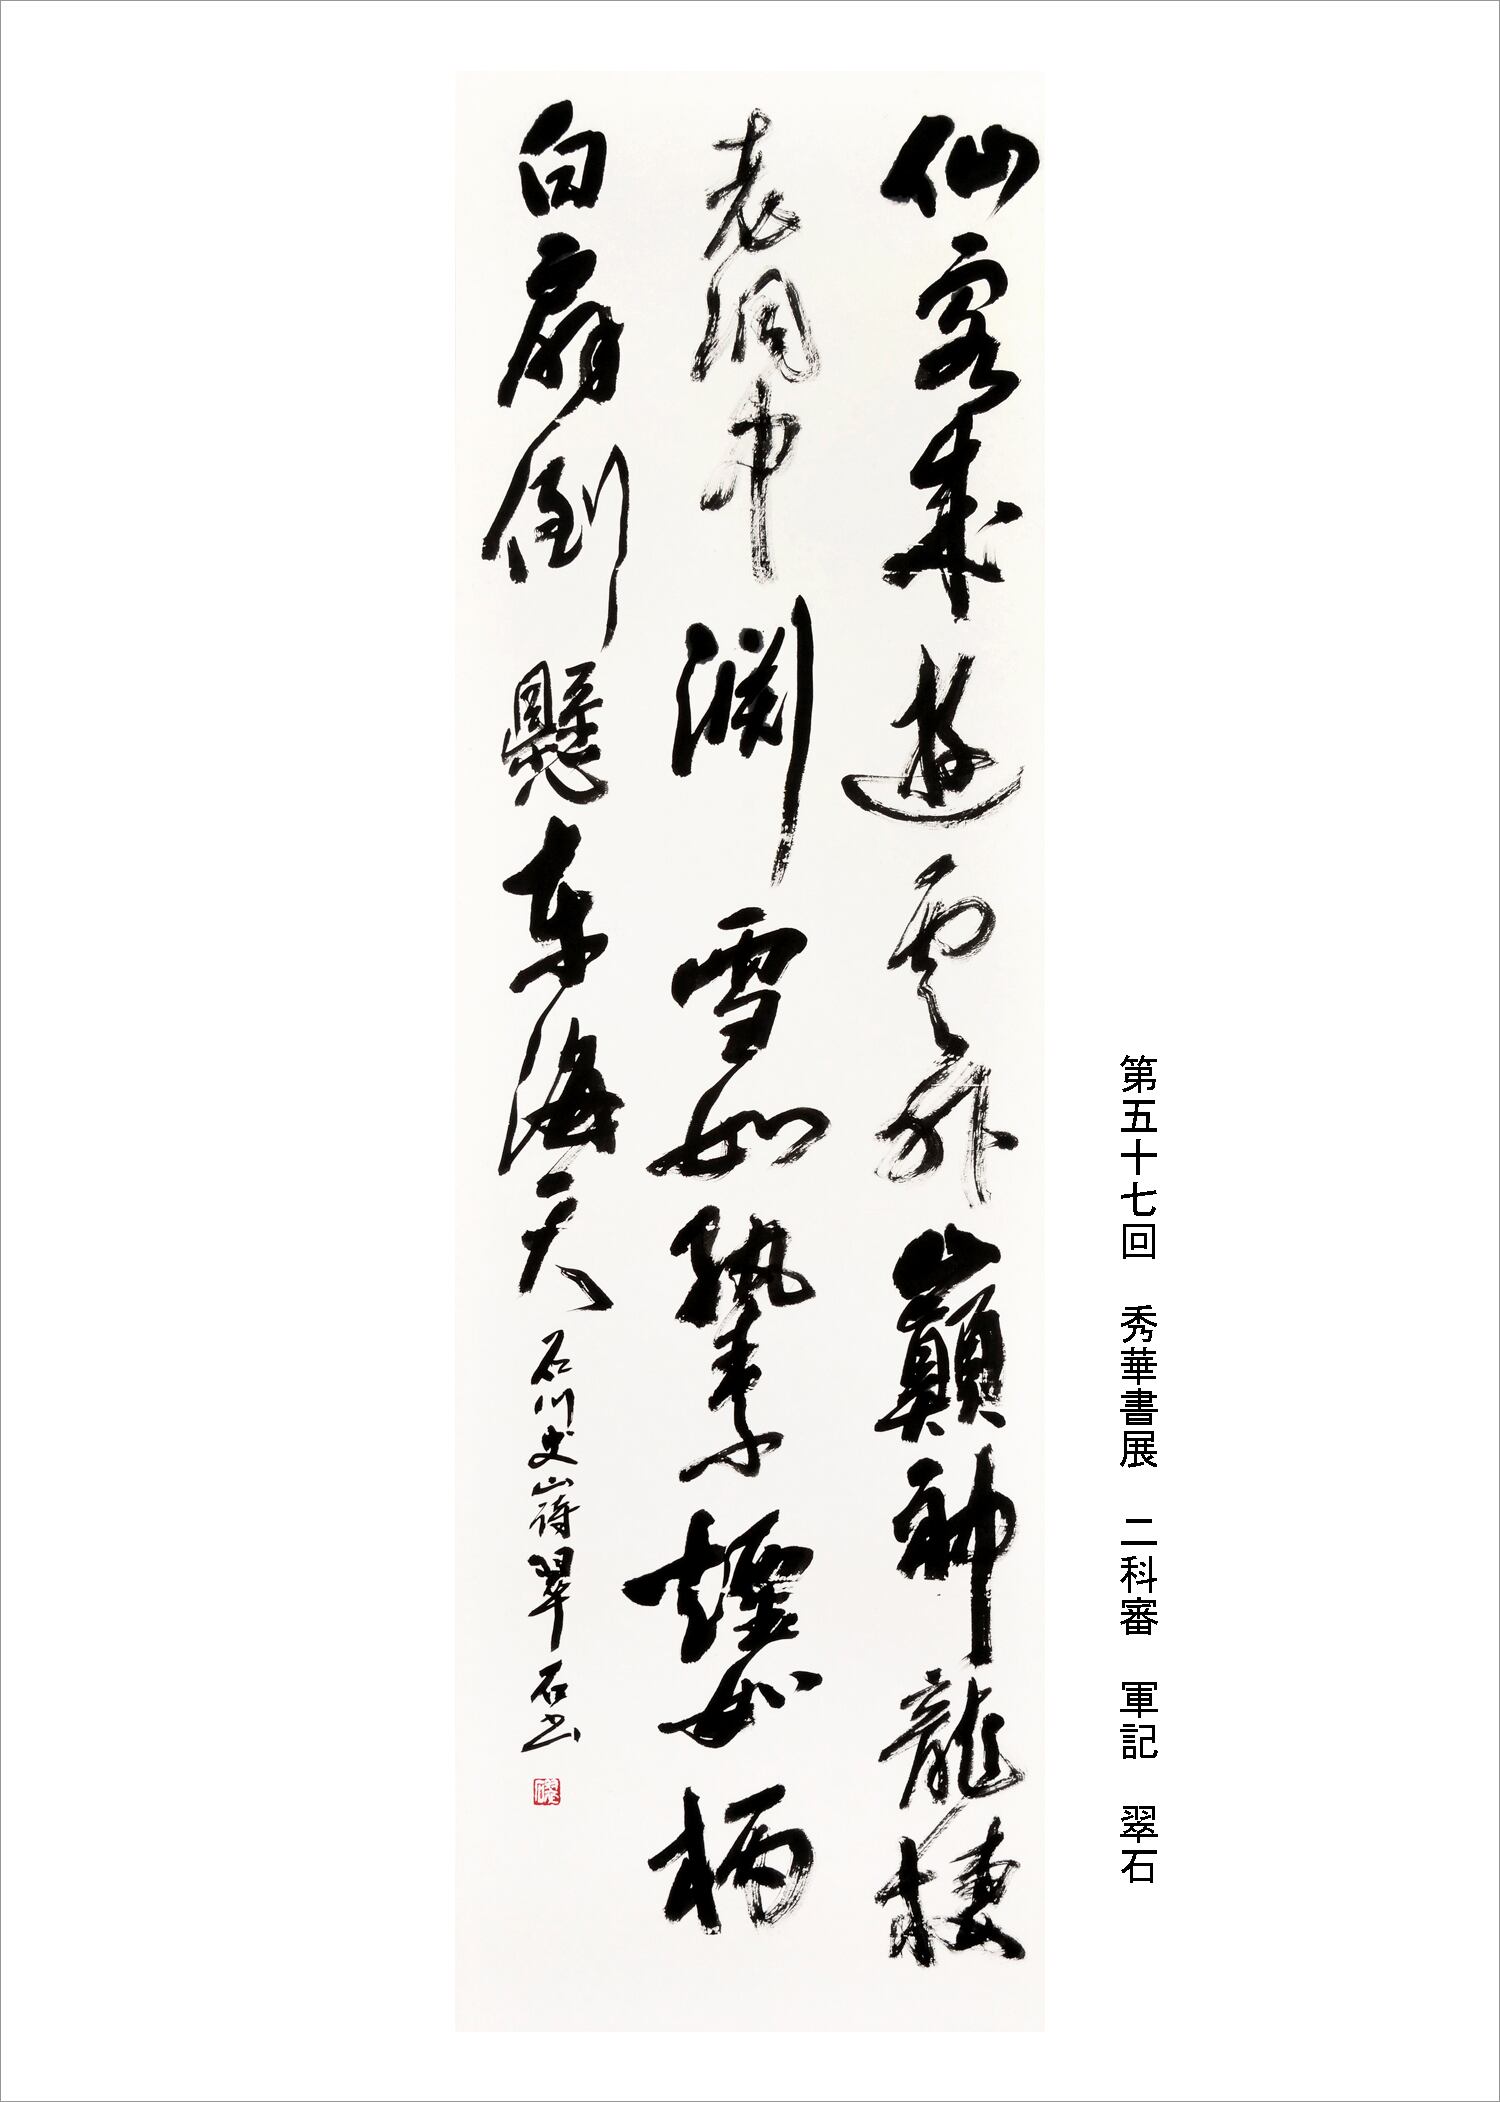 第五十七回　秀華書展　二科審　軍記　翠石
仙客来遊雲外巓神龍棲
老洞中淵雪如紈素煙如柄
白扇倒懸東海天 石川丈山詩 翠石書